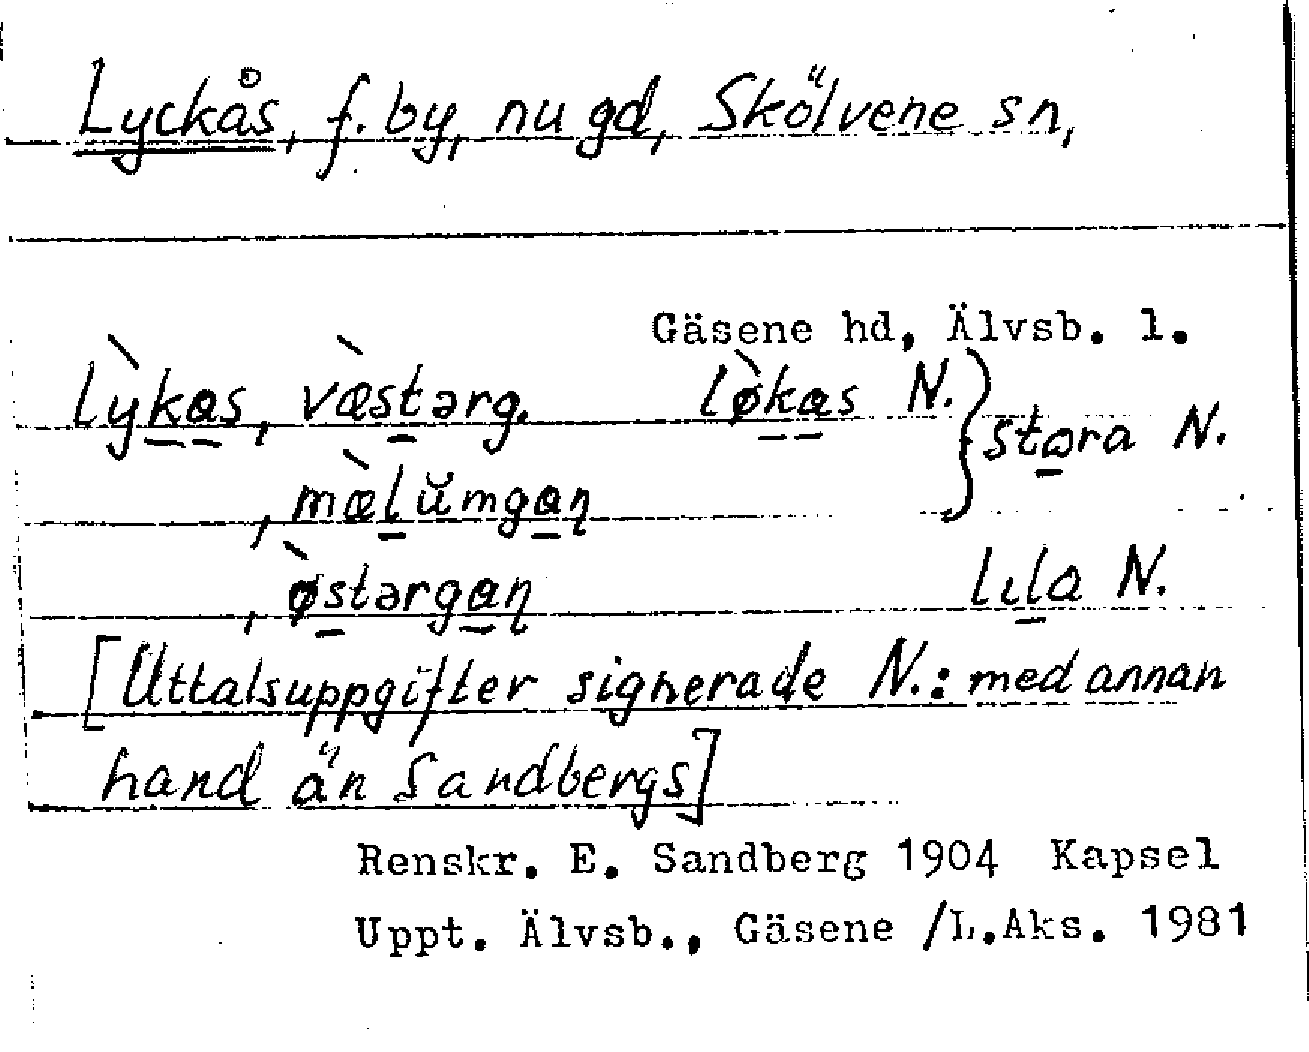 Lyckås, f. by, nu gd, Skölvene sn,
Gäsene hd, Älvsb. l.
lỳkas, væ̀stərg. lø̀kas N. } stɷra N.
, mæ̀lŭmgaɳ
, ø̀stərgaɳ lɩla N.
[Uttalsuppgifter signerade N.: med annan
hand än Sandbergs]
Renskr. E. Sandberg 1904 Kapsel
Uppt. Älvsb., Gäsene /L.Aks. 1981